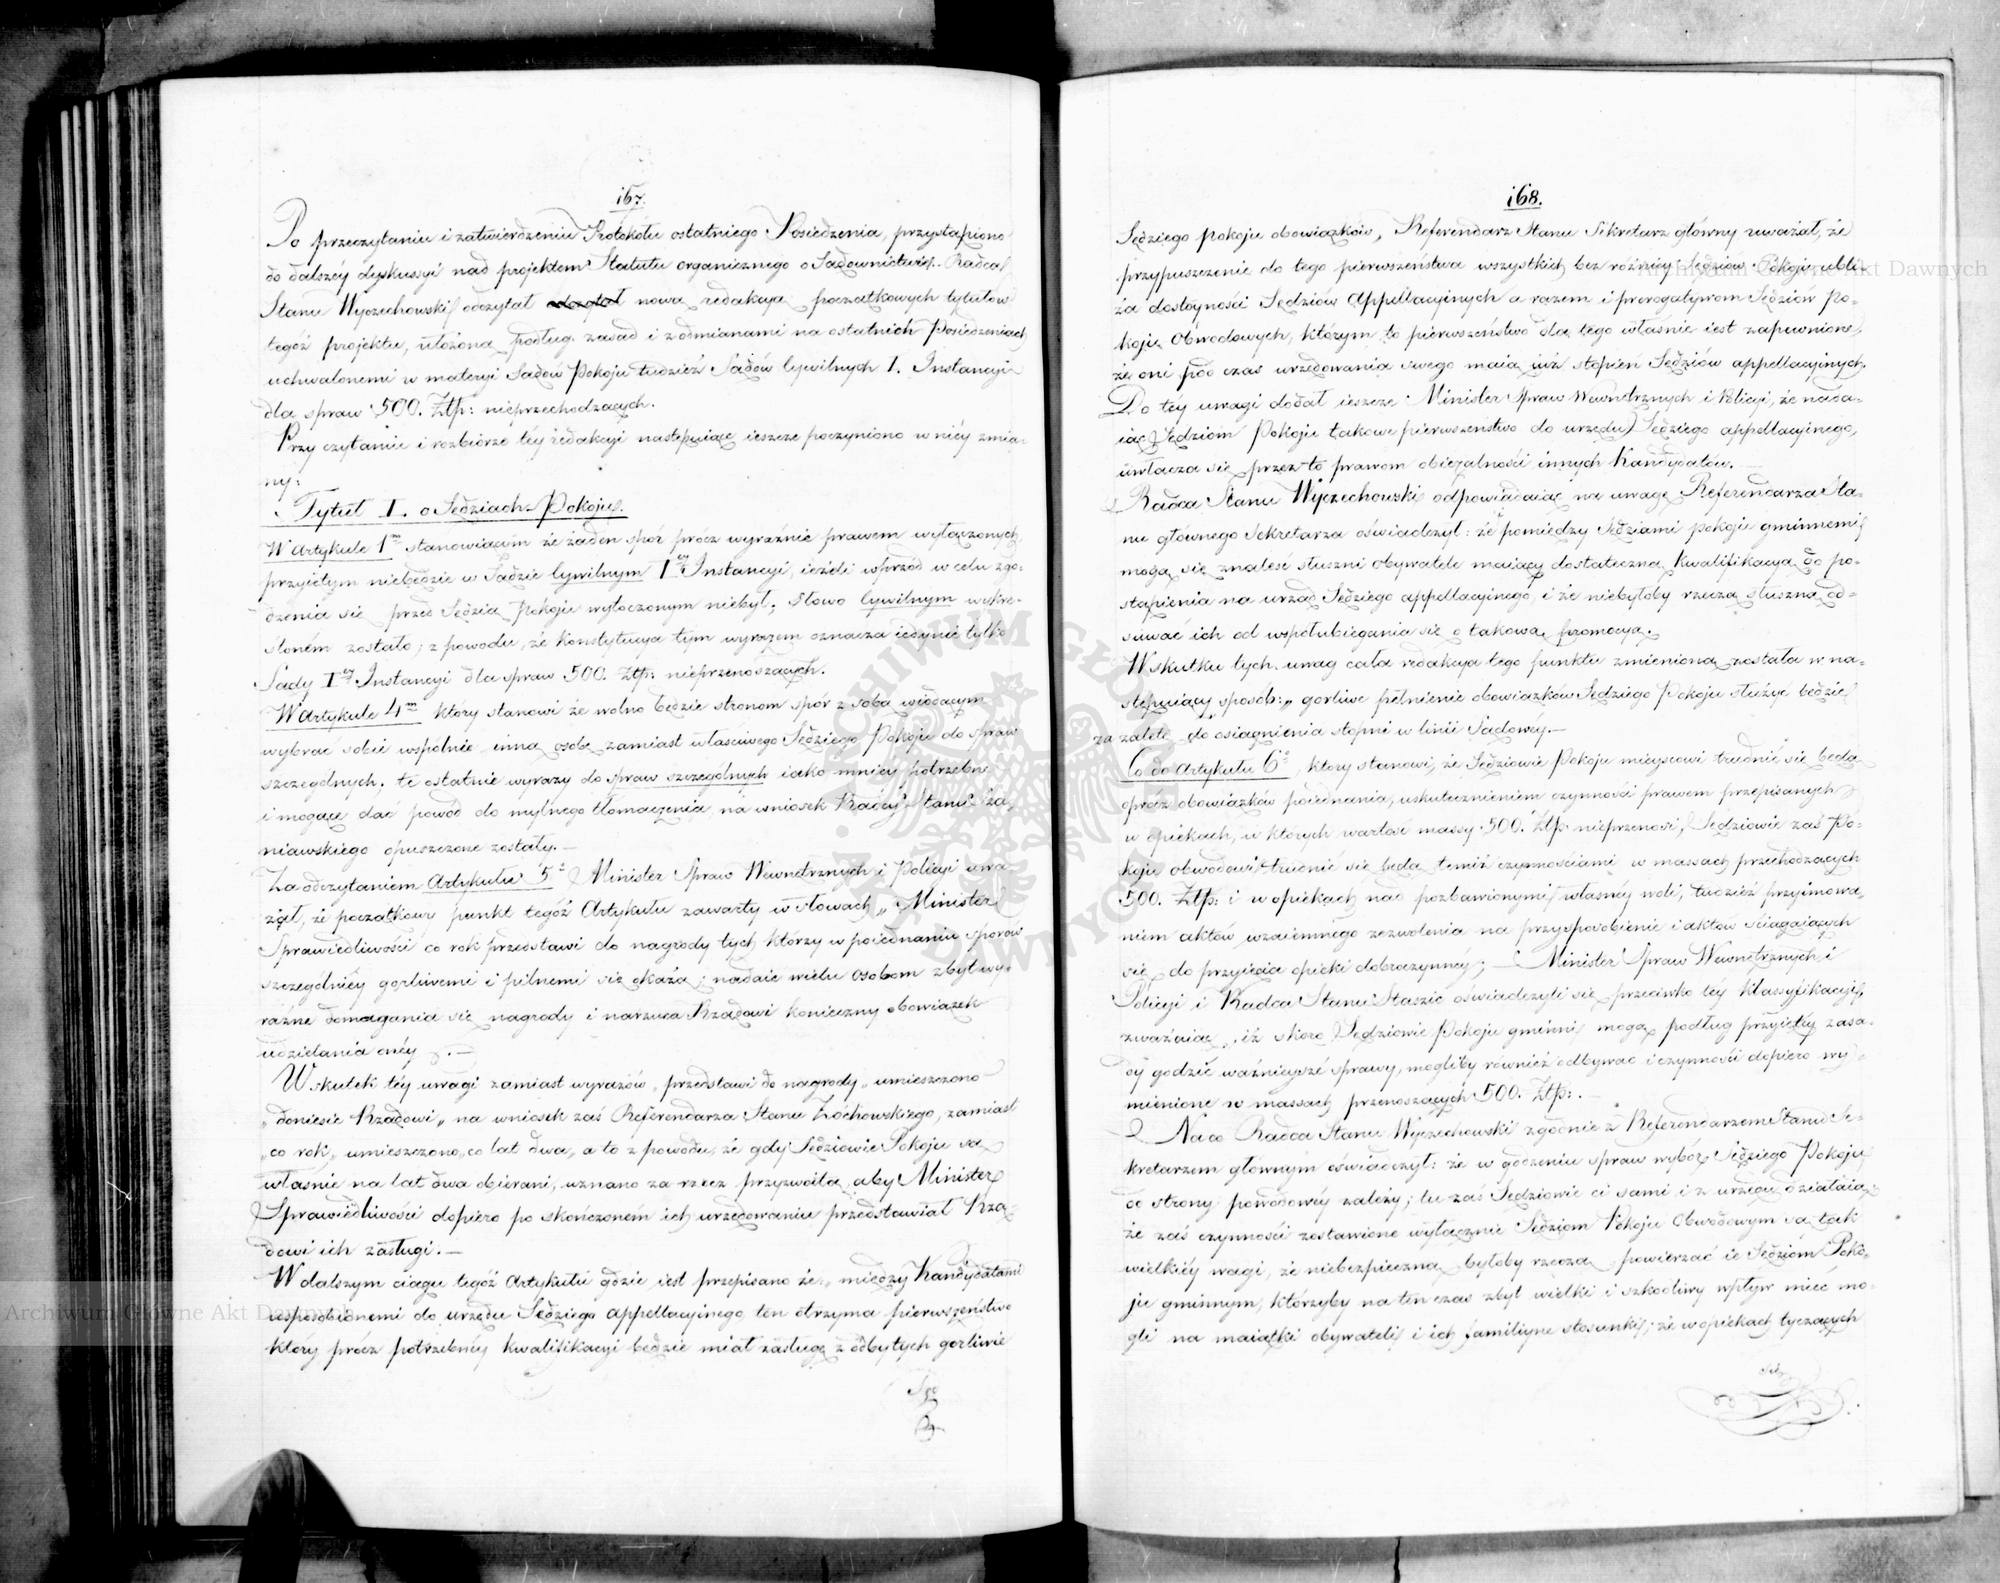 167.
Po przeczytaniu i zatwierdzeniu Protokółu ostatniego Posiedzenia, przystąpiono
do dalszéy dyskussyi nad projektem Statutu organicznego o Sądownictwie. Radca
Stanu Wyczechowski odczytał nową redakcyą początkowych tytułów
tegóż projektu, ułożoną podług zasad i z odmianami na ostatnich Posiedzeniach
uchwalonemi w materyi Sądów Pokoju tudzież Sądów Cywilnych I. Instancyi
dla spraw 500. Złp: nieprzechodzących.
Przy czytaniu i rozbiorze téy redakcyi następuiące ieszcze poczyniono w niéy zmia-
ny:
Tytuł I. o Sędziach Pokoju.
W Artykule 1m stanowiącym że żaden spór prócz wyraźnie prawem wyłączonych,
przyiętym niebędzie w Sądzie Cywilnym Iéy Instancyi, ieżeli wprzód w celu zgo-
dzenia się przed Sędzią Pokoju wytoczonym niebył. Słowo Cywilnym wykre-
ślonem zostało; z powodu, że Konstytucya tym wyrazem oznacza iedynie tylko
Sądy Iéy Instancyi dla spraw 500. Złp: nieprzenoszących.
W Artykule 4m który stanowi że wolno będzie stronom spór z sobą wiodącym
wybrać sobie wspólnie inną osobę zamiast właściwego Sędziego Pokoju do spraw
szczególnych. te ostatnie wyrazy do spraw szczególnych iako mniéy potrzebne
i mogące dać powód do mylnego tłomaczenia, na wniosek Radcy Stanu Sza-
niawskiego opuszczone zostały.—
Za odczytaniem Artykułu 5o Minister Spraw Wewnętrznych i Policyi uwa-
żał, że początkowy punkt tegóż Artykułu zawarty w słowach „Minister
Sprawiedliwości co rok przedstawi do nagrody tych, którzy w poiednaniu sporów
szczególniéy gorliwemi i pilnemi się okażą; nadaie wielu osobom zbyt wy-
raźne domagania się nagrody i narzuca Rządowi konieczny obowiązek
udzielania onéy.—
W skutek téy uwagi zamiast wyrazów „przedstawi do nagrody„ umieszczono
„doniesie Rządowi„ na wniosek zaś Referendarza Stanu Żochowskiego, zamiast
„co rok„ umieszczono „co lat dwa„ a to z powodu, że gdy Sędziowie Pokoju są
właśnie na lat dwa obierani, uznano za rzecz przyzwoitą, aby Minister
Sprawiedliwości dopiero po skończonem ich urzędowaniu przedstawiał Rzą-
dowi ich zasługi.—
W dalszym ciągu tegóż Artykułu gdzie iest przepisano że „między Kandydatami
usposobionemi do urzędu Sędziego appellacyinego, ten otrzyma pierwszeństwo
który prócz potrzebnéy kwalifikacyi będzie miał zasługę z odbytych gorliwie
168.
Sędziego Pokoju obowiązków„ Referendarz Stanu Sekretarz główny uważał, że
przypuszczenie do tego pierwszeństwa wszystkich bez różnicy Sędziów Pokoju ubli-
ża dostoyności Sędziów Appellacyinych a razem i prerogatywom Sędziów Po-
koju Obwodowych, którym to pierwszeństwo dla tego właśnie iest zapewnione,
że oni pod czas urzędowania swego maią już stopień Sędziów appellacyinych.
Do téy uwagi dodał ieszcze Minister Spraw Wewnętrznych i Policyi, że nada-
iąc Sędziom Pokoju takowe pierwszeństwo do urzędu Sędziego appellacyinego,
uwłacza się przez to prawom obieralności innych Kandydatów.—
Radca Stanu Wyczechowski odpowiadaiąc na uwagę Referendarza Sta-
nu głównego Sekretarza oświadczył: że pomiędzy Sędziami pokoju gminnemi
mogą się znaleść słuszni obywatele maiący dostateczną kwalifikacyą do po-
stąpienia na urząd Sędziego appellacyinego, i że niebyłoby rzeczą słuszną od-
suwać ich od współubiegania się o takową promocyą.
W skutku tych uwag cała redakcya tego punktu zmienioną została w na-
stępuiący sposób: „gorliwe pełnienie obowiązków Sędziego Pokoju służyć będzie
za zaletę do osiągnienia stopni w linii Sądowéy.—
Co do Artykułu 6o, który stanowi, że Sędziowie Pokoju mieyscowi trudnić się będą
oprócz obowiązków poiednania, uskutecznieniem czynności prawem przepisanych
w opiekach, w których wartość massy 500. Złp: nieprzenosi, Sędziowie zaś Po-
koju obwodowi trudnić się będą temiż czynnościami w massach przechodzących
500. Złp: i w opiekach nad pozbawionymi własnéy woli, tudzież przyimowa-
niem aktów wzaiemnego zezwolenia na przysposobienie i aktów ściągaiących
się do przyięcia opieki dobroczynney;— Minister Spraw Wewnętrznych i
Policyi i Radca Stanu Staszic oświadczyli się przeciwko téy klassyfikacyi,
zważaiąc, iż skoro Sędziowie Pokoju gminni mogą podług przyiętéy zasa-
dy godzić ważnieysze sprawy, mogliby również odbywać i czynności dopiero wy-
mienione w massach przenoszących 500. Złp:.—
Na co Radca Stanu Wyczechowski zgodnie z Referendarzem Stanu Se-
kretarzem głównym oświadczył: że w godzeniu spraw wybór Sędziego Pokoju
od strony powodowéy zależy; tu zaś Sędziowie ci sami i z urzędu działaią;
że zaś czynności zostawione wyłącznie Sędziom Pokoju Obwodowym są tak
wielkiéy wagi, że niebezpieczną byłoby rzeczą powierzać ie Sędziom Poko-
ju gminnym, którzyby na ten czas zbyt wielki i szkodliwy wpływ mieć mo-
gli na maiątki obywateli i ich familiyne stosunki; że w opiekach tyczących
Archiwum Główne Akt Dawnych